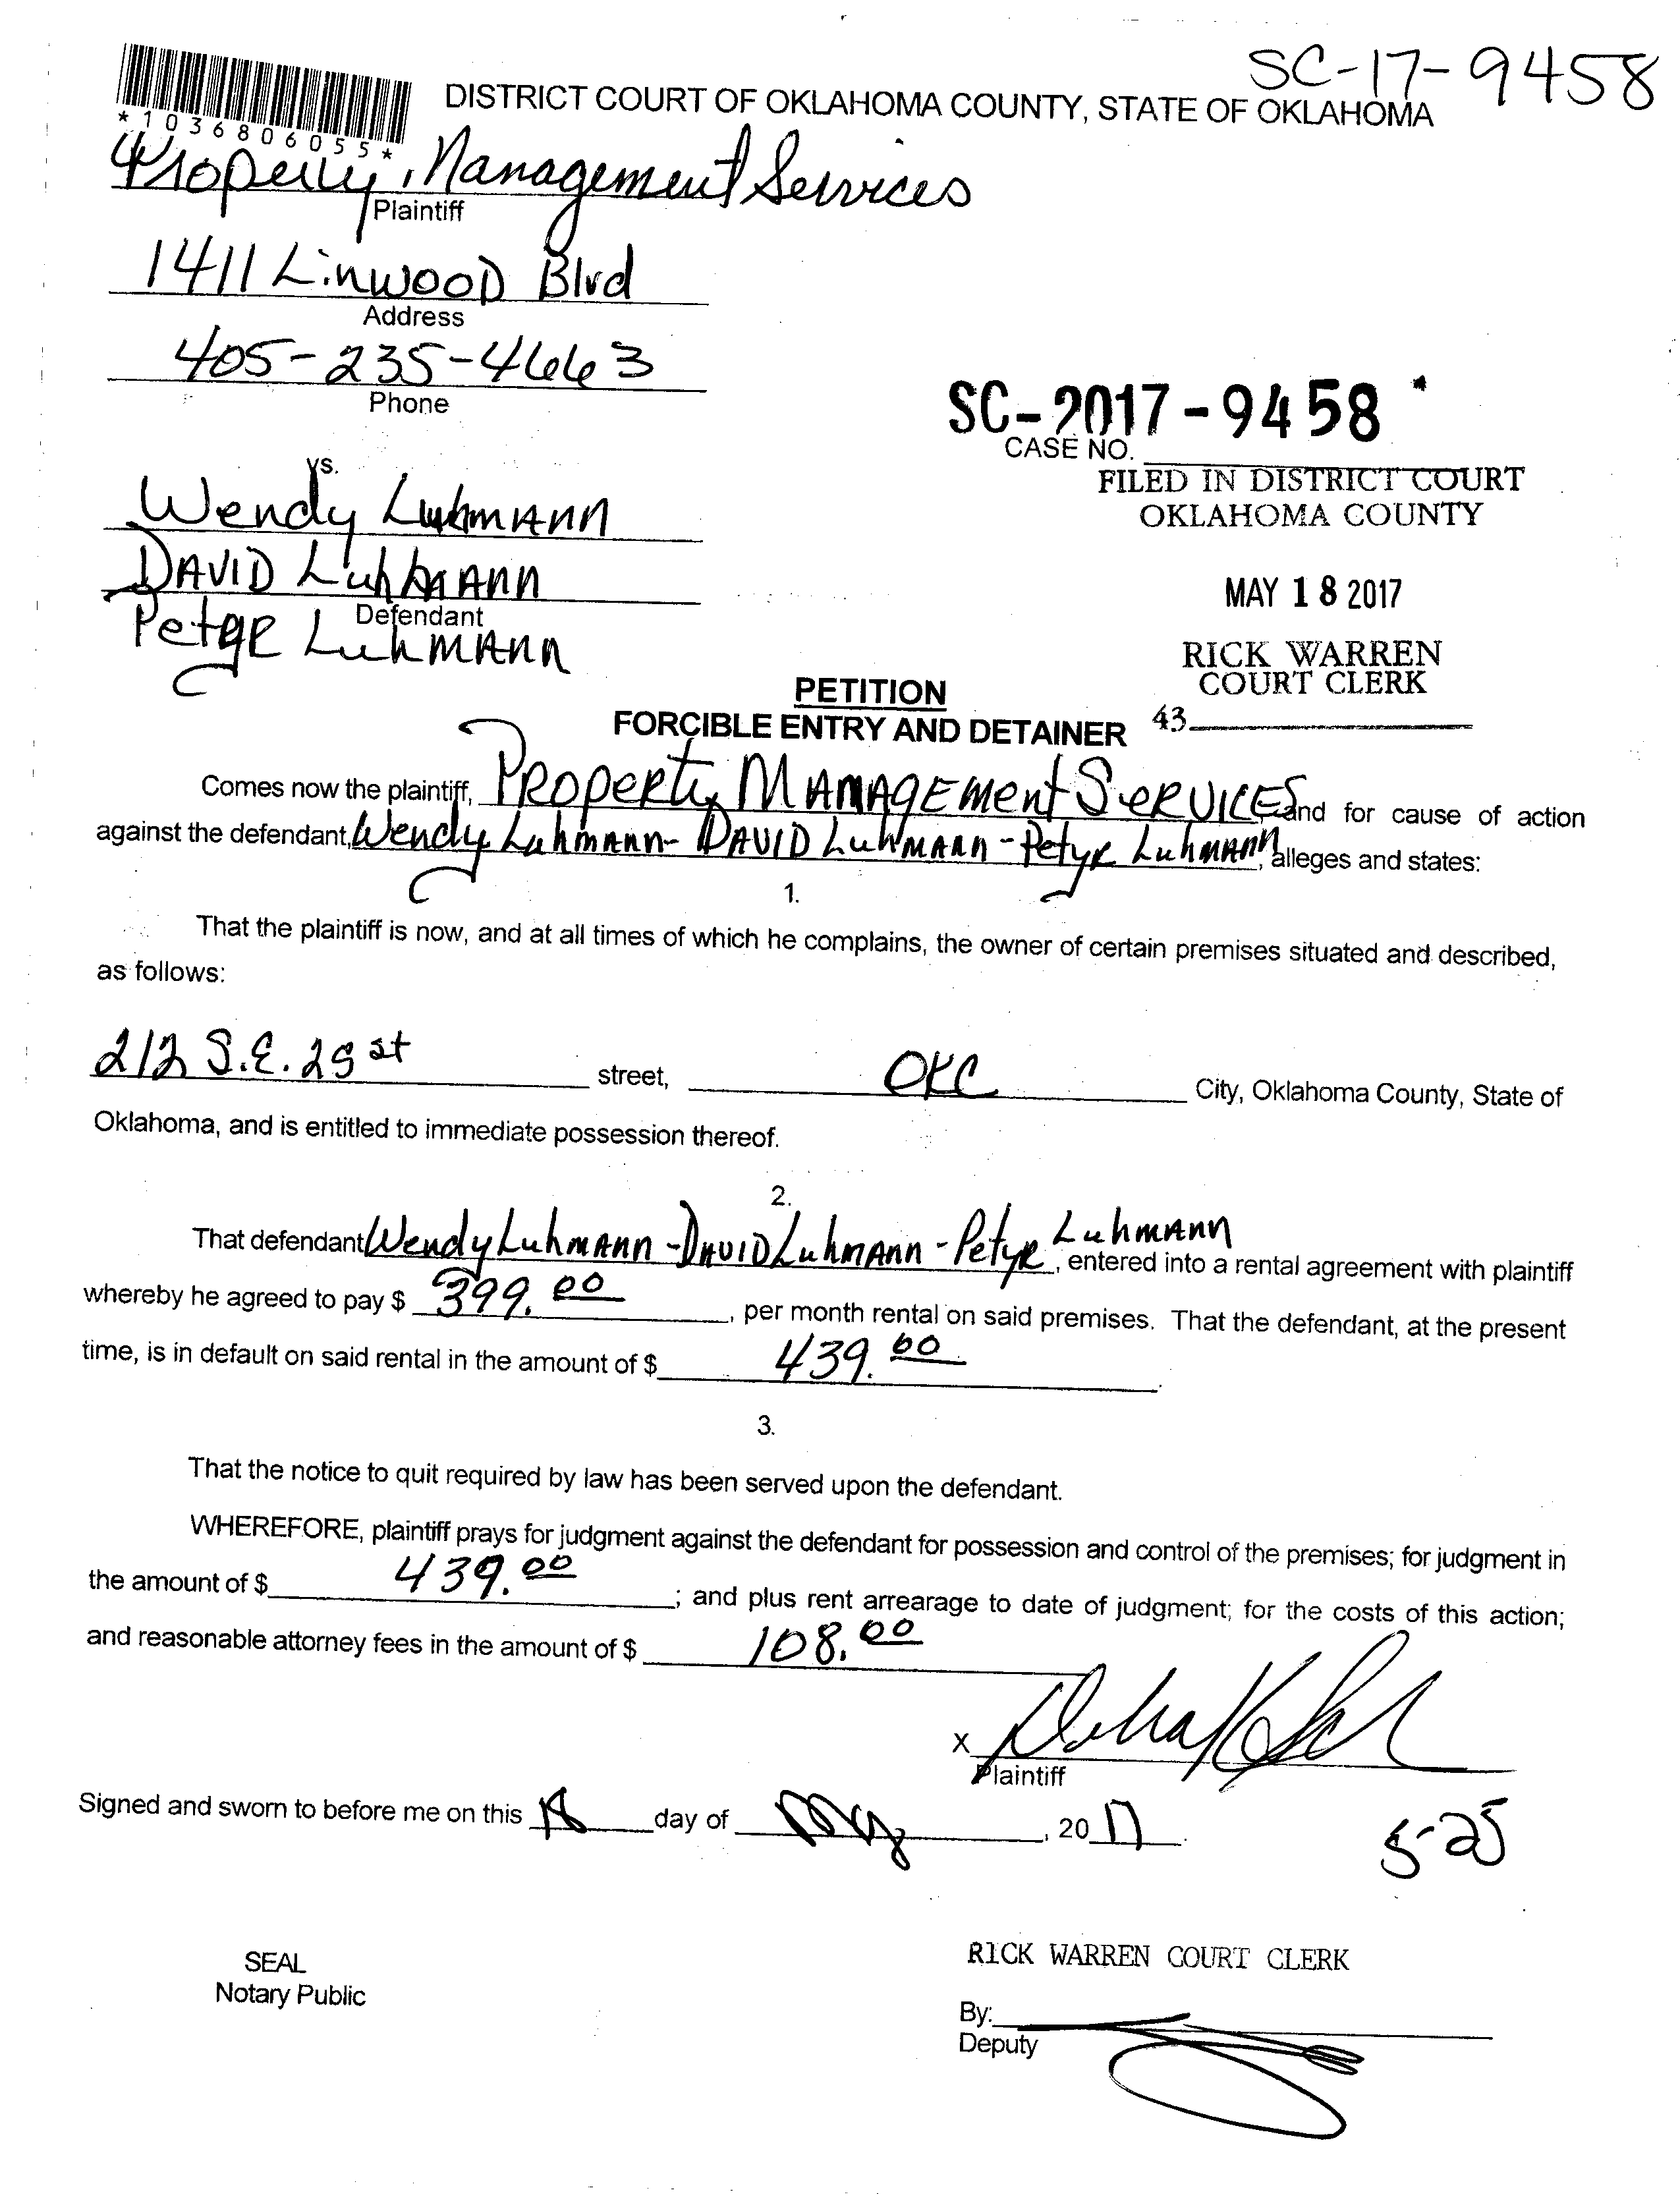 SC-17-9458
*1036806055*
DISTRICT COURT OF OKLAHOMA COUNTY, STATE OF OKLAHOMA
Property Management Services
Plaintiff
1411 Linwood Blvd
Address
405-235-4663
Phone
SC-2017-9458
CASE NO.
vs.
FILED IN DISTRICT COURT
OKLAHOMA COUNTY
Wendy Luhmann
DAVID Luhmann
Defendant
Petyr Luhmann
MAY 18 2017
RICK WARREN
COURT CLERK
43
PETITION
FORCIBLE ENTRY AND DETAINER
Comes now the plaintiff, Property Management Services and for cause of action
against the defendant, Wendy Luhmann - DAVID Luhmann - Petyr Luhmann, alleges and states:
1.
That the plaintiff is now, and at all times of which he complains, the owner of certain premises situated and described,
as follows:
212 S.E. 29 st street, OKC City, Oklahoma County, State of
Oklahoma, and is entitled to immediate possession thereof.
2.
That defendant Wendy Luhmann - DAVID Luhmann - Petyr Luhmann, entered into a rental agreement with plaintiff
whereby he agreed to pay $ 399.00, per month rental on said premises. That the defendant, at the present
time, is in default on said rental in the amount of $ 439.00.
3.
That the notice to quit required by law has been served upon the defendant.
WHEREFORE, plaintiff prays for judgment against the defendant for possession and control of the premises; for judgment in
the amount of $ 439.00; and plus rent arrearage to date of judgment; for the costs of this action;
and reasonable attorney fees in the amount of $ 108.00
X
Plaintiff
Signed and sworn to before me on this 18 day of May, 2017.
5-25
SEAL
Notary Public
RICK WARREN COURT CLERK
By:
Deputy